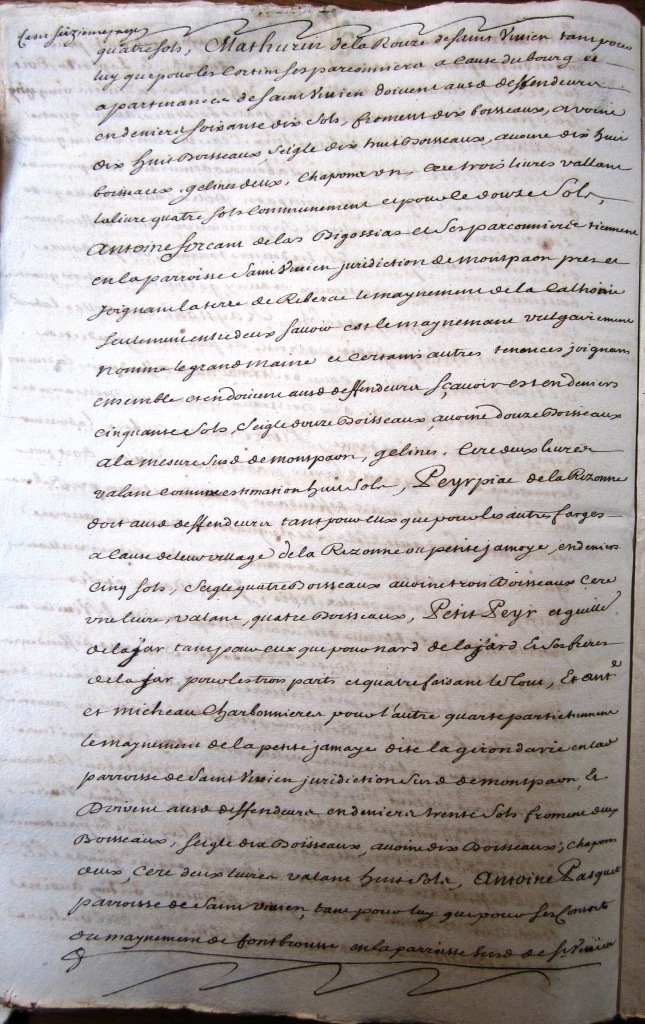 Cent seizieme page
quatre sols, Mathurin de la Rouze de Saint Vivien tant pour
luy que pour les Cortims ses parconniers a cause du bourg et
apartenances de Saint Vivien doivent ausd deffendeurs
en deniers soixante dix sols, froment dix boisseaux, avoine
dix huit Boisseaux, seigle dix huit Boisseaux, avoine dix huit
boisseaux, gelines deux, chapons un, cere trois livres vallant
la livre quatre sols communement et pour le douze sols,
Antoine forcant de las Bigossias et ses parconniers tiennent
en la parroisse Saint Vivien juridiction de montpaon pres et
joignant la terre de Riberac le maynement de la Cathoine
seulement entre deux savoir est le maynemant vulgairement
nommé le grand maine et certains autres tenences joignans
ensemble et en doivent ausd deffendeurs sçavoir est en deniers
cinquante sols, seigle douze Boisseaux, avoine douze Boisseaux
a la mesure susd de montpaon, gelines, cere deux livres
valant comme estimation huit sols, Peyr piac de la Rizonne
doit ausd deffendeurs tant pour eux que pour les autres farges
a cause de leur village de la Rizonne ou petite jamaye, en deniers
cinq sols, seigle quatre Boisseaux avoine trois Boisseaux cere
une livre, valant, quatre Boisseaux, Petit Peyr et guille
de la jar tant pour eux que pour nard de la jard & ses freres
de la jar pour les trois parts et quatre faisant le tout, Et Ant.e
et micheau Charbonnieres pour l'autre quarte partie tiennent
le maynement de la petite jamaye dite la girondarie en lad
parroisse de Saint Vivien juridiction susd de montpaon, Et
Doivent ausd deffendeurs en deniers trente sols froment deux
Boisseaux, seigle dix Boisseaux, avoine dix Boisseaux, chapons
deux, cere deux livres valant huit sols, Antoine Pasquet
parroisse de Saint Vivien, tant pour luy que pour ses Consorts
du maynement de fontbrousse en la parroisse susd de St Vivien